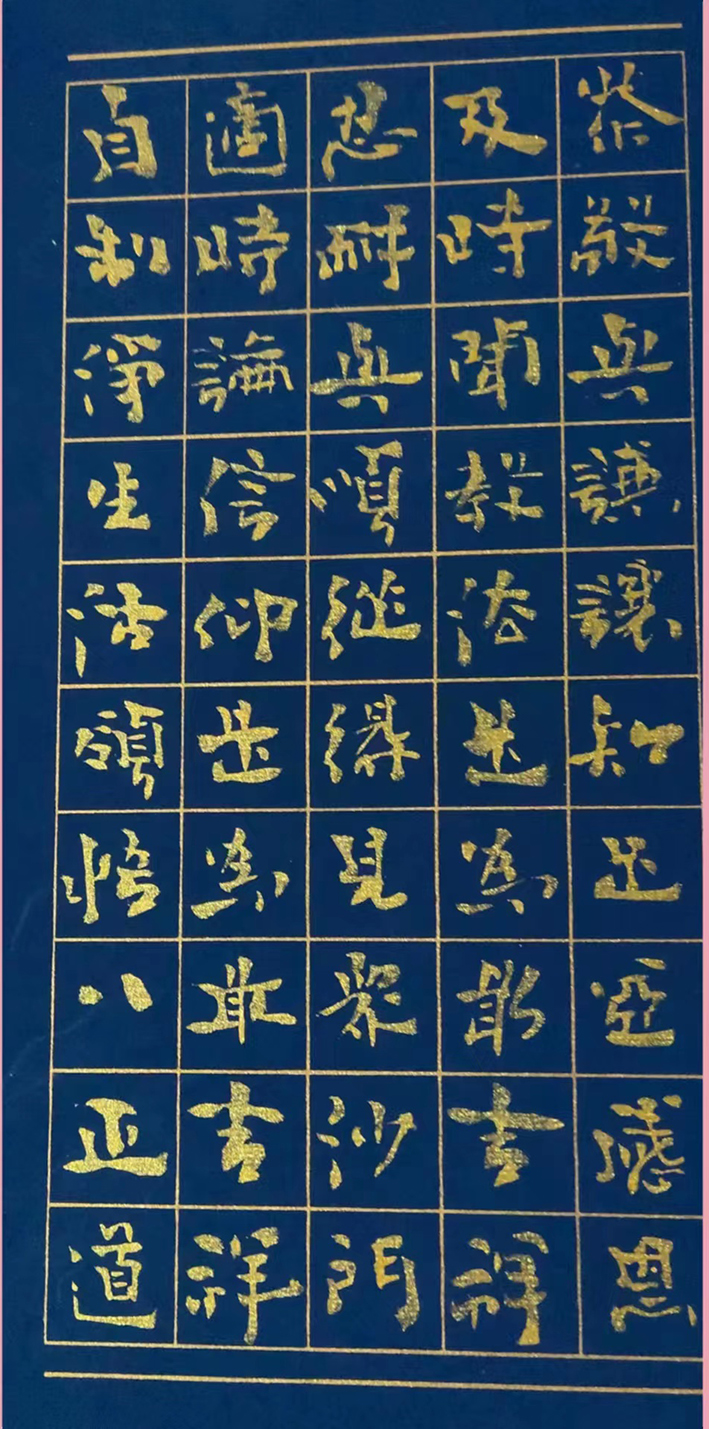 崇敬與謙讓知足並感恩
及時聞教法是為最吉祥
忍耐與順從得見眾沙門
適時論信仰是為最吉祥
自制淨生活領悟八正道